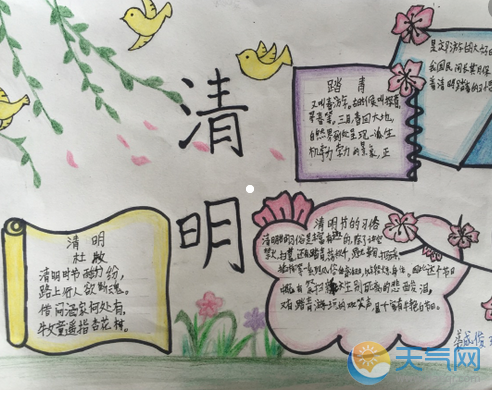 清
明
踏青
又叫春游。古时候叫探春、
寻春等，三月，春回大地，
自然界到处呈现一派生
机勃勃的景象，正
是郊游的大好
我国民间长期保
着清明踏青的习惯
清明
杜牧
清明时节雨纷纷，
路上行人欲断魂。
借问酒家何处有，
牧童遥指杏花村。
清明节的习俗
清明节的习俗是丰富有趣的，除了讲究
禁火、扫墓，还有踏青、荡秋千、蹴鞠、打马球、
插柳等一系列风俗体育活动
这个节日
既有祭扫
生别死离的悲酸泪，
又有踏青游玩的欢笑声，是一个富有特色的节日。
天气网